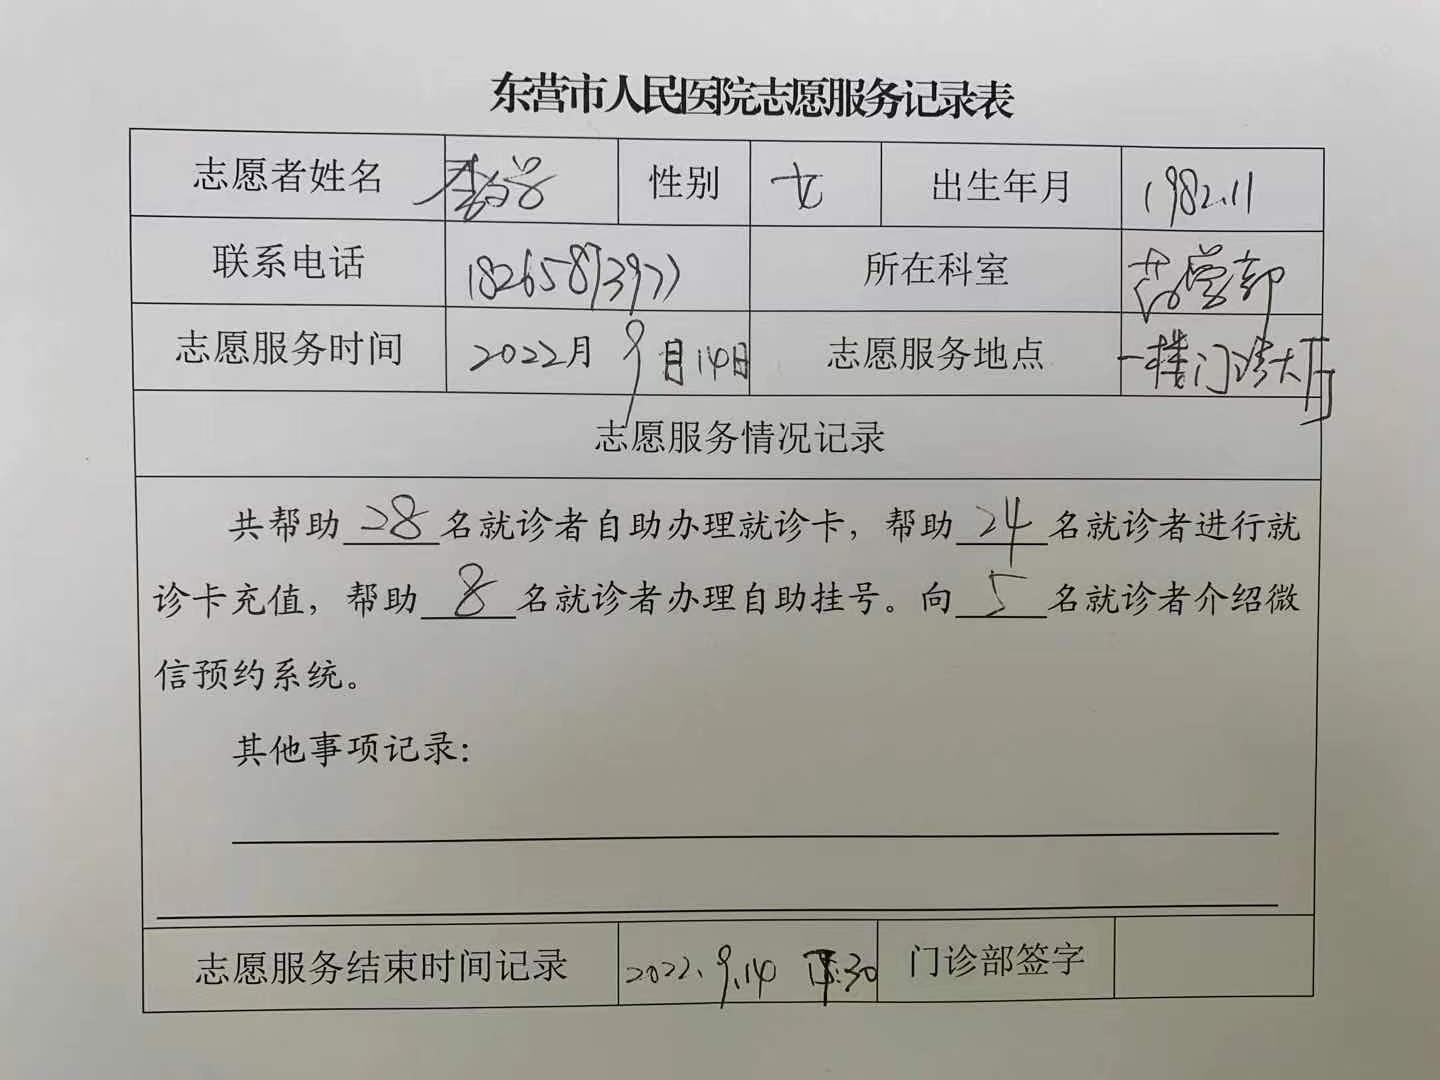 东营市人民医院志愿服务记录表
志愿者姓名 李 性别 女 出生年月 1982.11
联系电话 18265873977 所在科室 药学部
志愿服务时间 2022月9月14日 志愿服务地点 一楼门诊大厅
志愿服务情况记录
共帮助28名就诊者自助办理就诊卡，帮助24名就诊者进行就
诊卡充值，帮助8名就诊者办理自助挂号。向5名就诊者介绍微
信预约系统。
其他事项记录：
志愿服务结束时间记录 2022.9.14 :30 门诊部签字